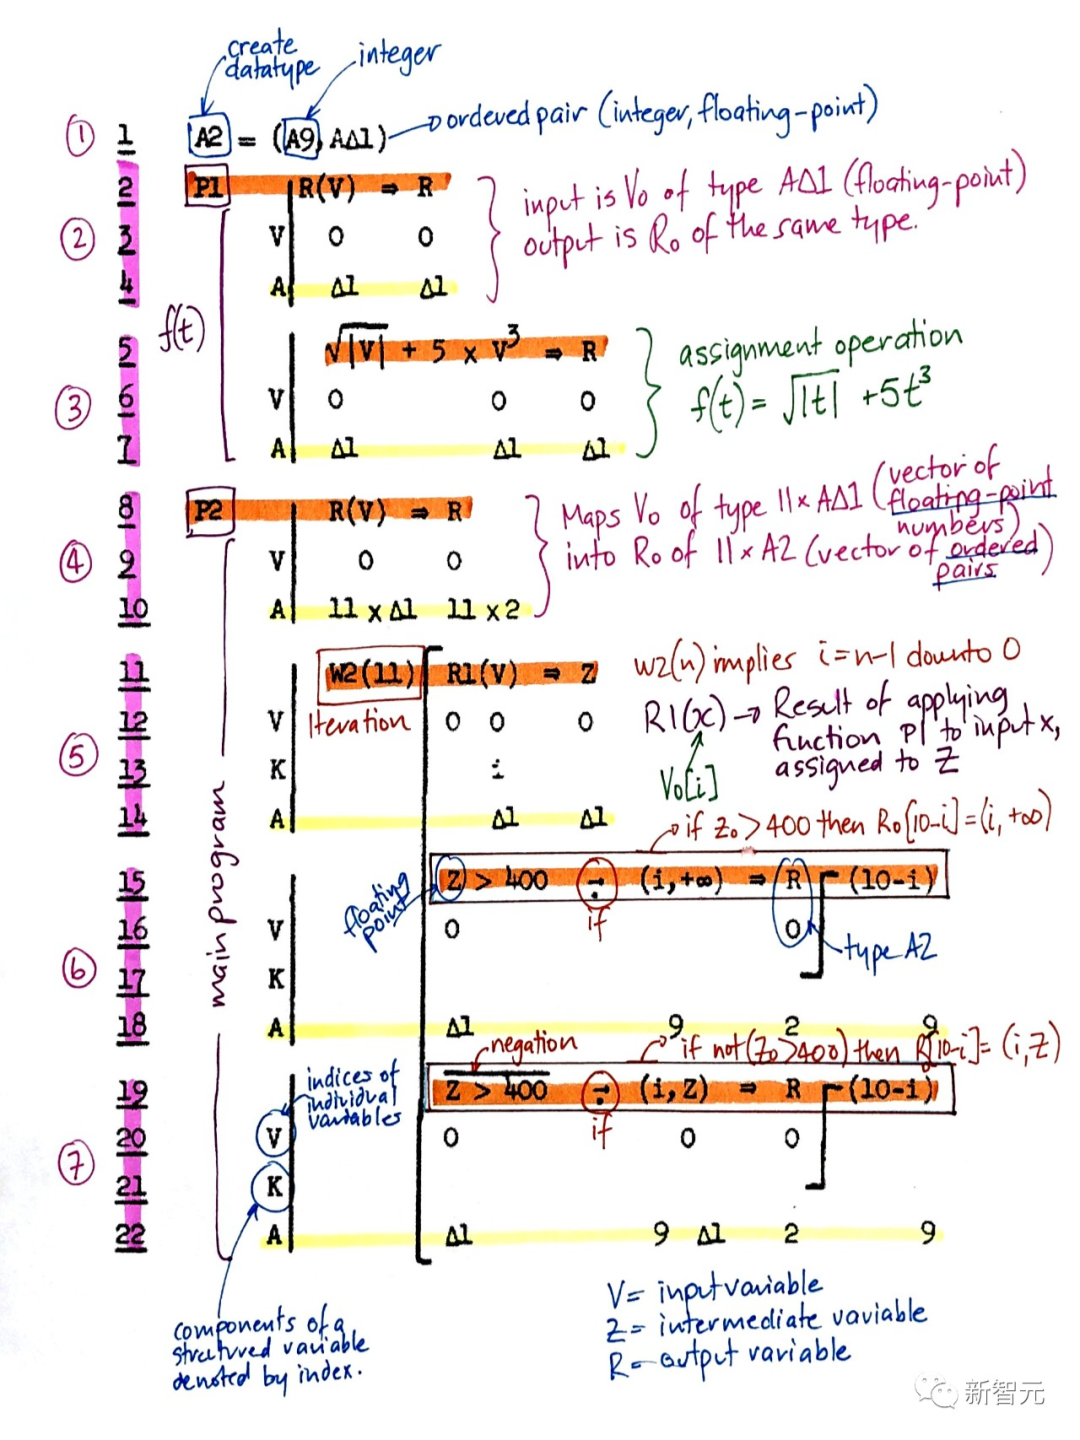 create
datatype
integer
① 1 A2 = (A9, AΔ1) ordered pair (integer, floating-point)
2 P1 R(V) ⇒ R
② 3 V 0 0
4 A Δ1 Δ1
input is V0 of type AΔ1 (floating-point)
output is R0 of the same type.
f(t)
5 √|V| + 5 × V³ ⇒ R
③ 6 V 0 0 0
7 A Δ1 Δ1 Δ1
assignment operation
f(t) = √|t| + 5t³
8 P2 R(V) ⇒ R
④ 9 V 0 0
10 A 11 x Δ1 11 x 2
Maps V0 of type 11 x AΔ1 (vector of
floating-point
numbers)
into R0 of 11 x A2 (vector of ordered
pairs)
main program
11 W2(11) R1(V) ⇒ Z
12 V Iteration 0 0 0
⑤ 13 K i
14 A Δ1 Δ1
w2(n) implies i=n-1 downto 0
R1(x) → Result of applying
function P1 to input x,
assigned to Z
V0[i]
if Z0 > 400 then R0[10-i] = (i, +∞)
15 Z > 400 → (i,+∞) ⇒ R (10-i)
floating
point
if
16 V 0 0
type A2
⑥ 17 K
18 A Δ1 9 2 9
negation
if not(Z0>400) then R[10-i] = (i,Z)
19 Z > 400 → (i,Z) ⇒ R (10-i)
indices of
individual
variables
if
20 V 0 0 0
⑦ 21 K
22 A Δ1 9 Δ1 2 9
components of a
structured variable
denoted by index.
V= input variable
Z= intermediate variable
R= output variable
新智元